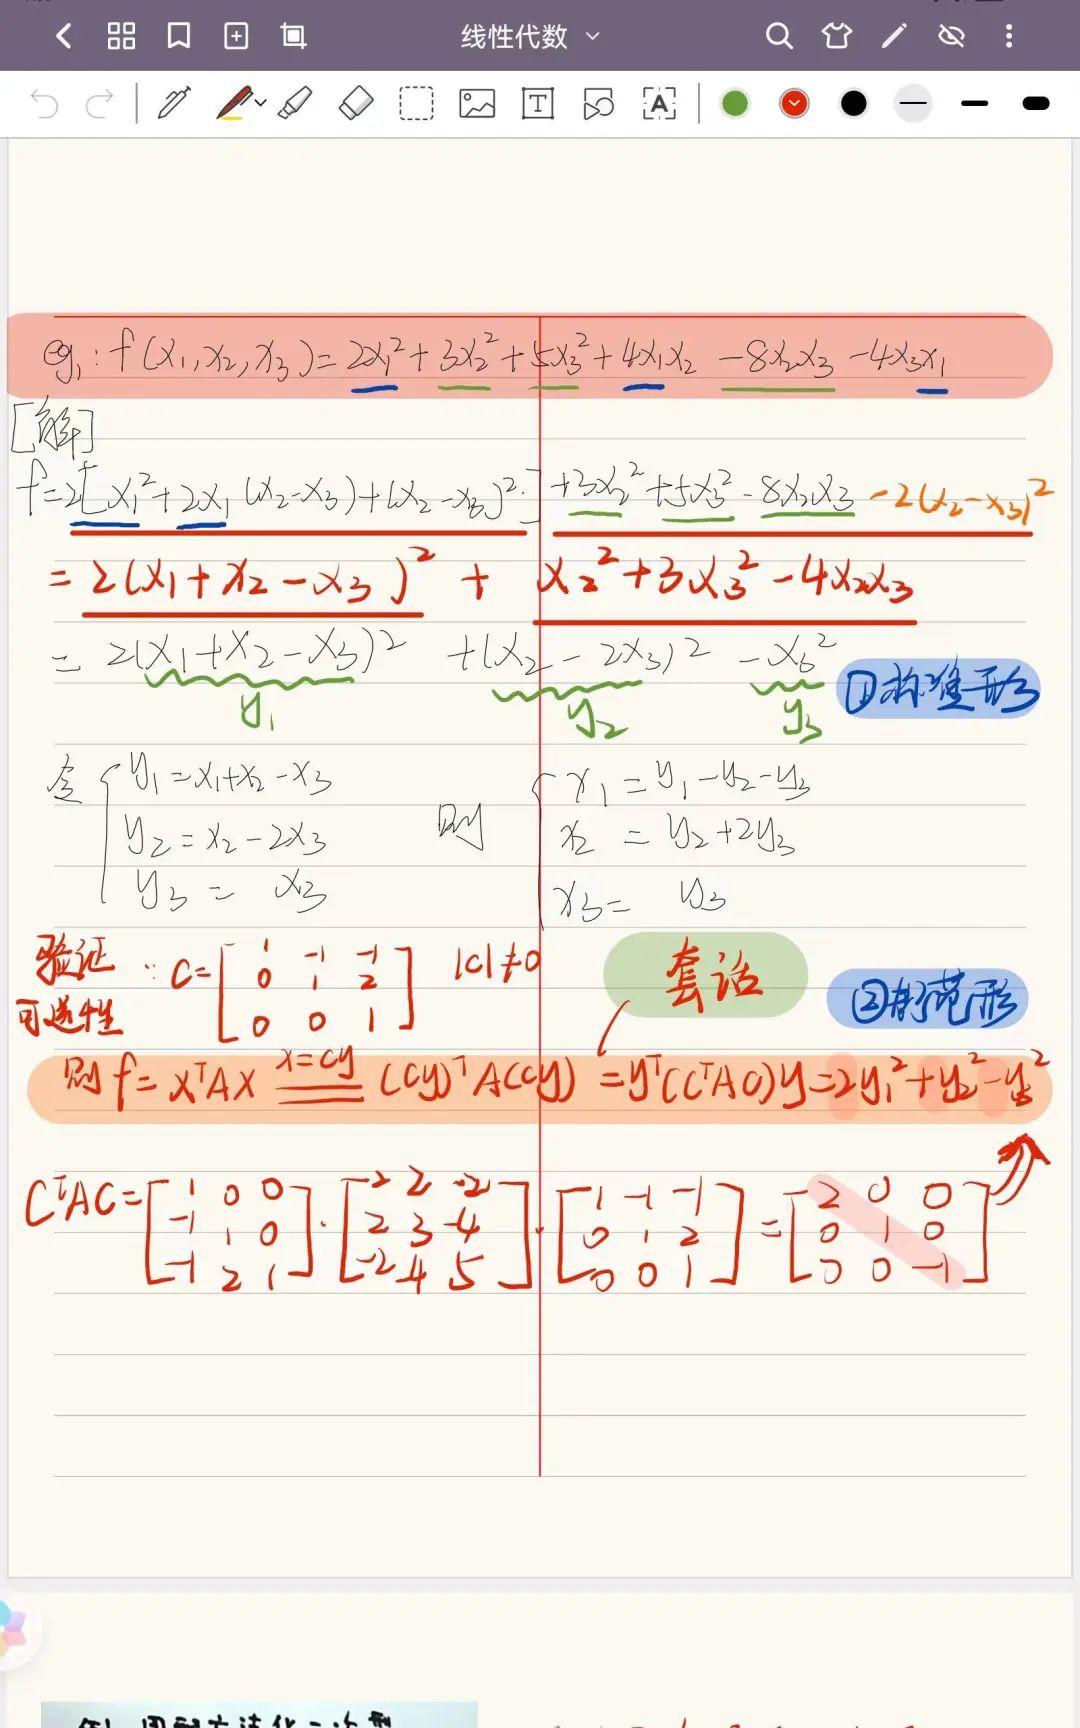 线性代数
eg1: f(x1,x2,x3)=2x1²+3x2²+5x3²+4x1x2-8x2x3-4x3x1
[解]
f=2[x1²+2x1(x2-x3)+(x2-x3)²]+3x2²+5x3²-8x2x3-2(x2-x3)²
=2(x1+x2-x3)²+x2²+3x3²-4x2x3
=2(x1+x2-x3)²+(x2-2x3)²-x3² ①标准形
y1 y2 y3
令 { y1=x1+x2-x3 则 { x1=y1-y2-y3
y2=x2-2x3 x2=y2+2y3
y3=x3 x3=y3
验证可逆性 ∵C=[1 -1 -1
0 1 2
0 0 1] |C|≠0 套话 ②规范形
则f=xᵀAx x=cy (Cy)ᵀA(Cy)=yᵀ(CᵀAC)y=2y1²+y2²-y3²
CᵀAC=[1 0 0 · [2 2 -2 · [1 -1 -1 = [2 0 0
-1 1 0 2 3 -4 0 1 2 0 1 0
-1 2 1] -2 -4 5] 0 0 1] 0 0 -1]